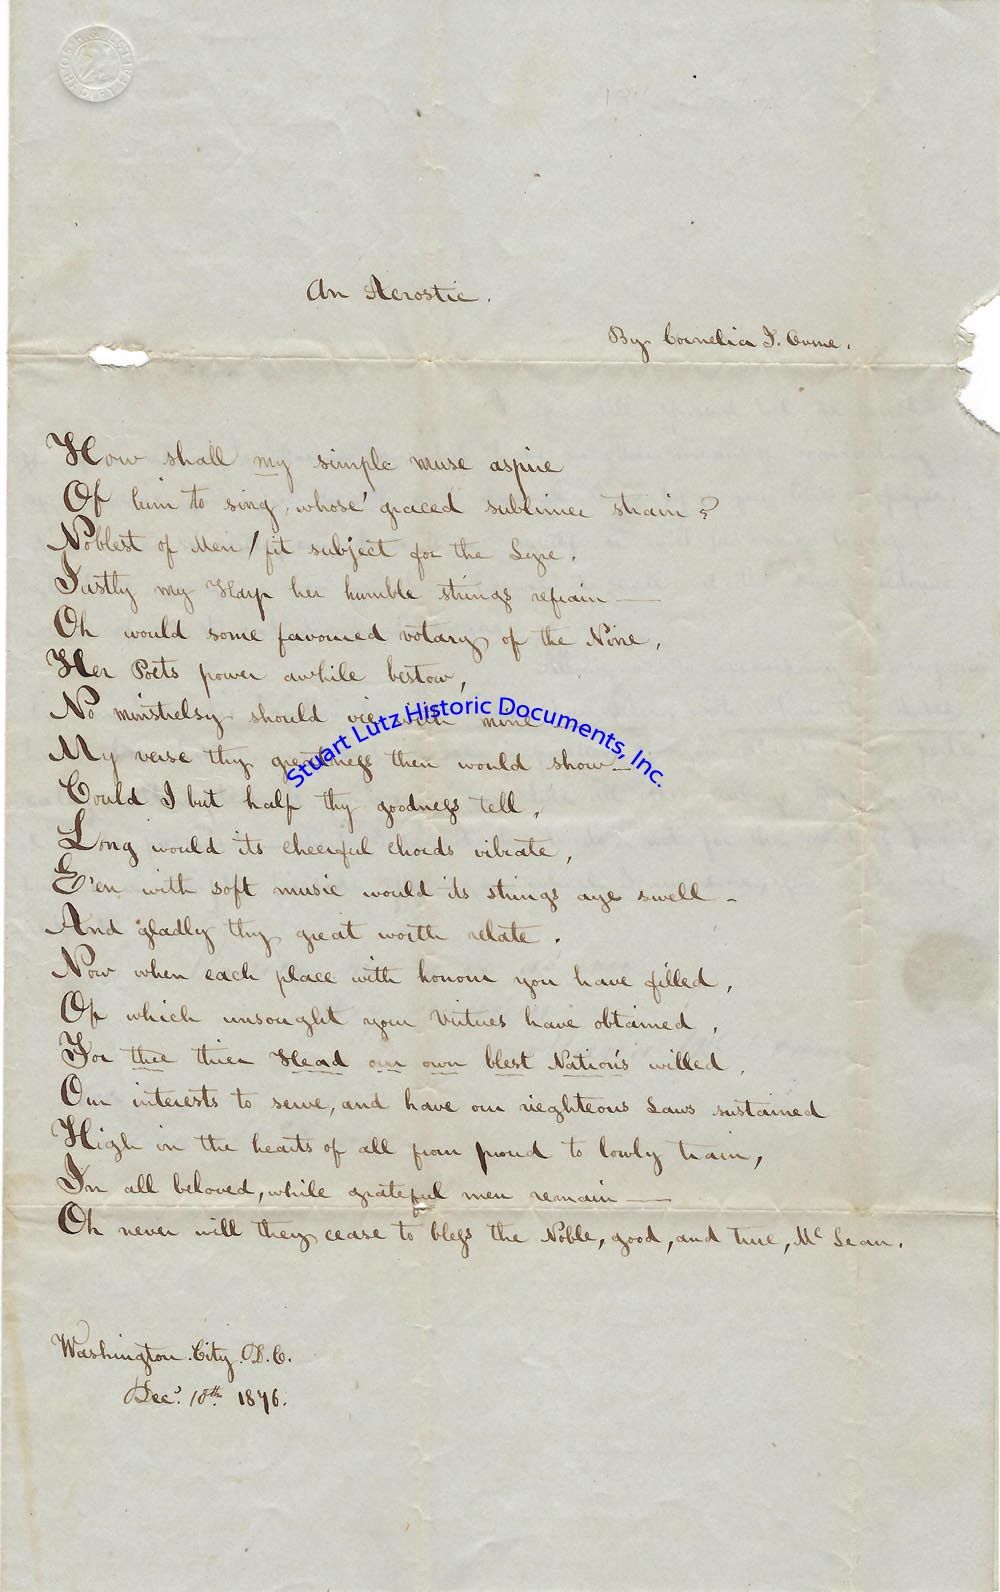 An Acrostic.
By Cornelia J. Orme.
How shall my simple muse aspire
Of him to sing, whose graced sublimer strain?
Noblest of Men / fit subject for the Lyre.
Justly my Harp her humble strings refrain —
Oh would some favoured votary of the Nine,
Her Poets power awhile bestow,
No minstrelsy should vie with mine
My verse thy greatness then would show —
Could I but half thy goodness tell,
Long would its cheerful chords vibrate,
E'en with soft music would its strings aye swell -
And gladly thy great worth relate.
Now when each place with honour you have filled,
Of which unsought your Virtues have obtained,
For thee their Head our own blest Nation's willed,
Our interests to serve, and have our rieghteous Laws sustained
High in the hearts of all from proud to lowly train,
In all beloved, while grateful men remain —
Oh never will they cease to bless the Noble, good, and true, Mc Lean.
Washington City. D.C.
Decr. 10th 1846.
Stuart Lutz Historic Documents, Inc.